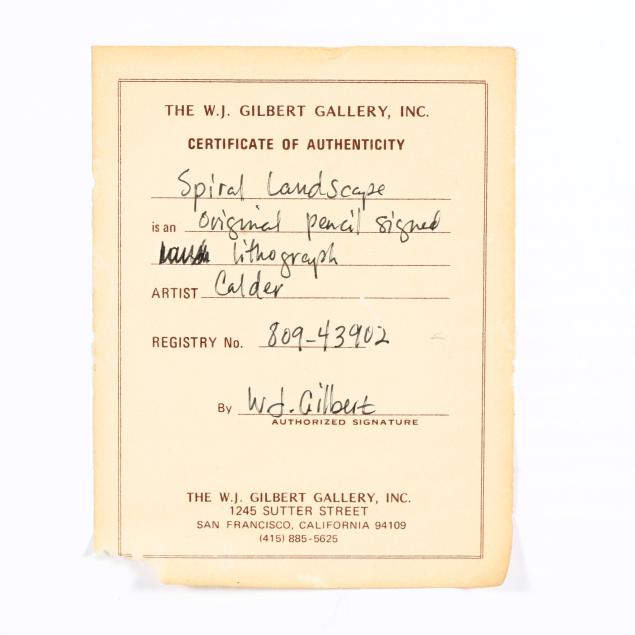 THE W.J. GILBERT GALLERY, INC.
CERTIFICATE OF AUTHENTICITY
Spiral Landscape
is an original pencil signed
lithograph
ARTIST Calder
REGISTRY No. 809-43902
By W.J. Gilbert
AUTHORIZED SIGNATURE
THE W.J. GILBERT GALLERY, INC.
1245 SUTTER STREET
SAN FRANCISCO, CALIFORNIA 94109
(415) 885-5625